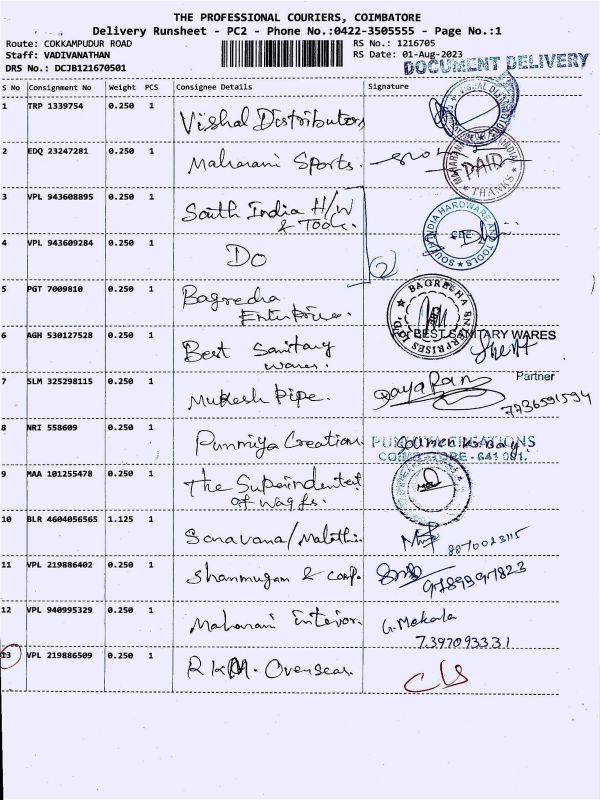 THE PROFESSIONAL COURIERS, COIMBATORE
Delivery Runsheet - PC2 - Phone No.:0422-3505555 - Page No.:1
Route: COKKAMPUDUR ROAD RS No.: 1216705
Staff: VADIVANATHAN RS Date: 01-Aug-2023
DRS No.: DCJB121670501 DOCUMENT DELIVERY
S No Consignment No Weight PCS Consignee Details Signature
1 TRP 1339754 0.250 1 Vishal Distributors
2 EDQ 23247281 0.250 1 Maharani Sports. PAID THANKS
3 VPL 943608895 0.250 1 South India H/W
& Tools. SOUTH INDIA HARDWARE AND TOOLS
4 VPL 943609284 0.250 1 Do 2
5 PGT 7009810 0.250 1 Bagrecha
Enterprises. BAGRECHA ENTERPRISES LTD.
6 AGH 530127528 0.250 1 Best Sanitary
wares. BEST SANITARY WARES
Partner
7 SLM 325298115 0.250 1 Mukesh Pipe.
7736591594
8 NRI 558609 0.250 1 Punmiya Creation. CREATIONS
COIMBATORE - 641 001.
9 MAA 101255478 0.250 1 The Superindentet
of wagfs.
10 BLR 4604056565 1.125 1 Saravana/Malathi.
8870023115
11 VPL 219886402 0.250 1 Shanmugam & comp.
12 VPL 940995329 0.250 1 Maharani Interior. G. Mekala
7397093331
13 VPL 219886509 0.250 1 RKM. Overseas. C/S